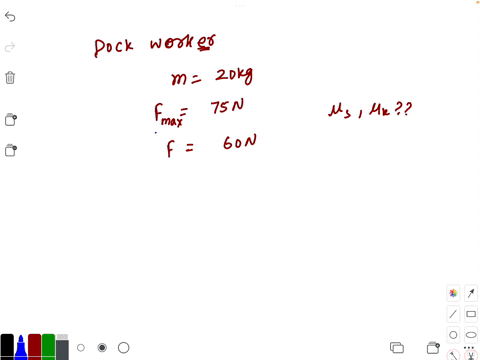 Dock worker
m = 20kg
Fmax = 75N
μs, μk ??
f = 60N